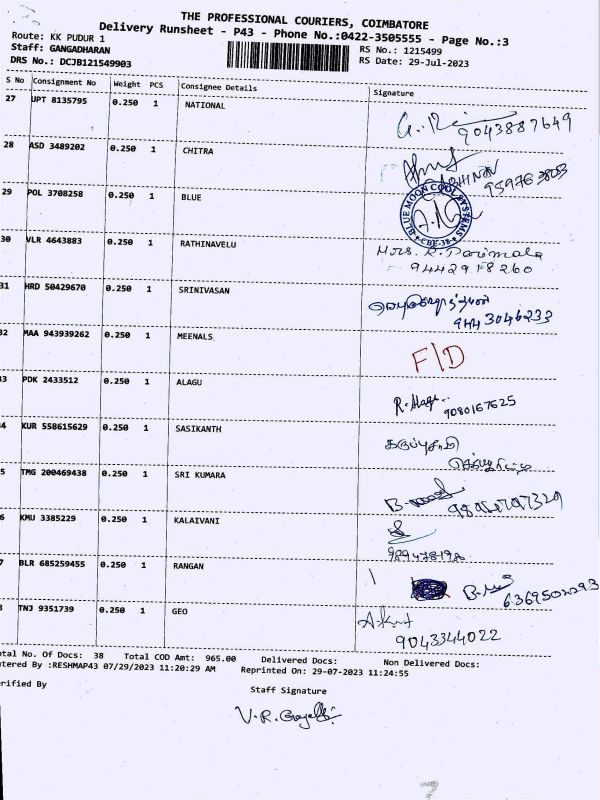 THE PROFESSIONAL COURIERS, COIMBATORE
Delivery Runsheet - P43 - Phone No.:0422-3505555 - Page No.:3
Route: KK PUDUR 1
RS No.: 1215499
Staff: GANGADHARAN
RS Date: 29-Jul-2023
DRS No.: DCJB121549903
S No Consignment No Weight PCS Consignee Details Signature
27 UPT 8135795 0.250 1 NATIONAL
9043887649
28 ASD 3489202 0.250 1 CHITRA
ABHINAV
29 POL 3708258 0.250 1 BLUE
BLUE MOON COOL SYSTEMS
CBE-38
30 VLR 4643883 0.250 1 RATHINAVELU
Mrs. R. Parimala
9442918260
31 HRD 50429670 0.250 1 SRINIVASAN
9443046233
32 MAA 943939262 0.250 1 MEENALS
F/D
33 PDK 2433512 0.250 1 ALAGU
R. Alagu
9080167625
4 KUR 558615629 0.250 1 SASIKANTH
கருப்புசாமி
5 TMG 200469438 0.250 1 SRI KUMARA
6 KMU 3385229 0.250 1 KALAIVANI
7 BLR 685259455 0.250 1 RANGAN
6369502293
TNJ 9351739 0.250 1 GEO
9043344022
otal No. Of Docs: 38 Total COD Amt: 965.00 Delivered Docs: Non Delivered Docs:
ntered By :RESHMAP43 07/29/2023 11:20:29 AM Reprinted On: 29-07-2023 11:24:55
rified By
Staff Signature